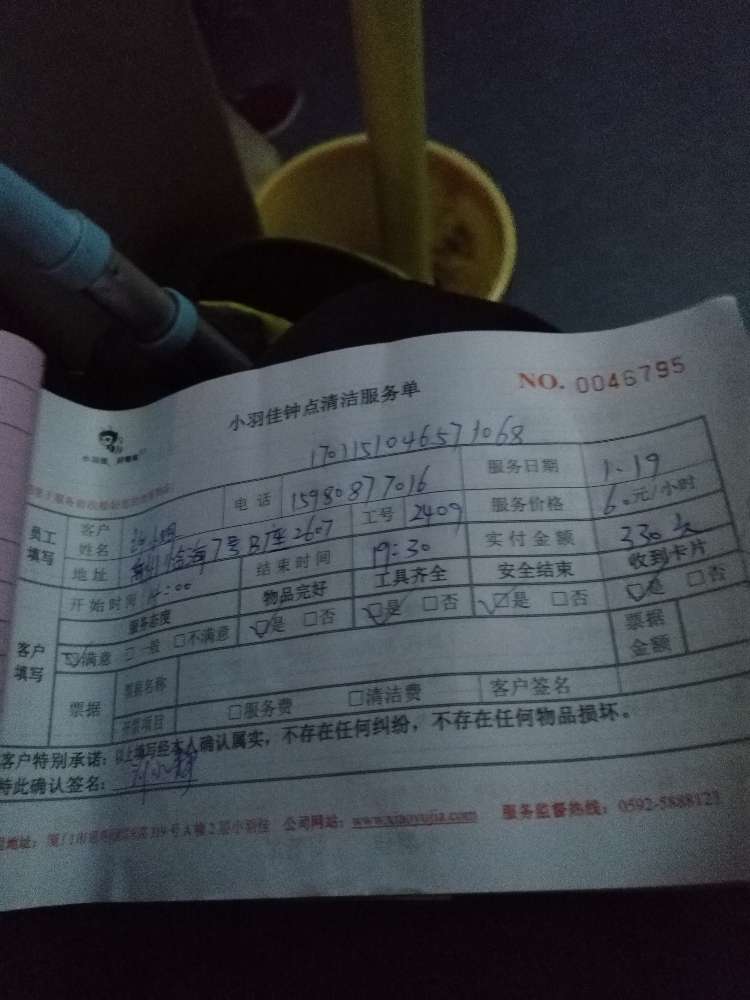 小羽佳钟点清洁服务单
NO. 0046795
1701151046571068
员工填写 客户姓名 电话 15980877016 服务日期 1.19
地址 临海7号B座2607 工号 2409 服务价格 60元/小时
开始时间 14:00 结束时间 19:30 实付金额 330
服务态度 物品完好 工具齐全 安全结束 收到卡片
客户填写 满意 一般 不满意 是 否 是 否 是 否 是 否
票据 票据名称 票据金额
开票项目 服务费 清洁费 客户签名
客户特别承诺：以上填写经本人确认属实，不存在任何纠纷，不存在任何物品损坏。
特此确认签名：
地址： 319号A幢2层小羽佳 公司网站：www.xiaoyujia.com 服务监督热线：0592-5888123